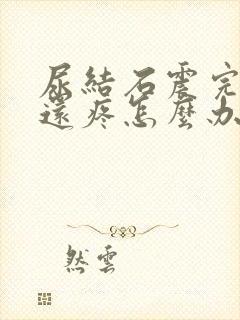 尿結石震完
還疼怎麼办
然雲